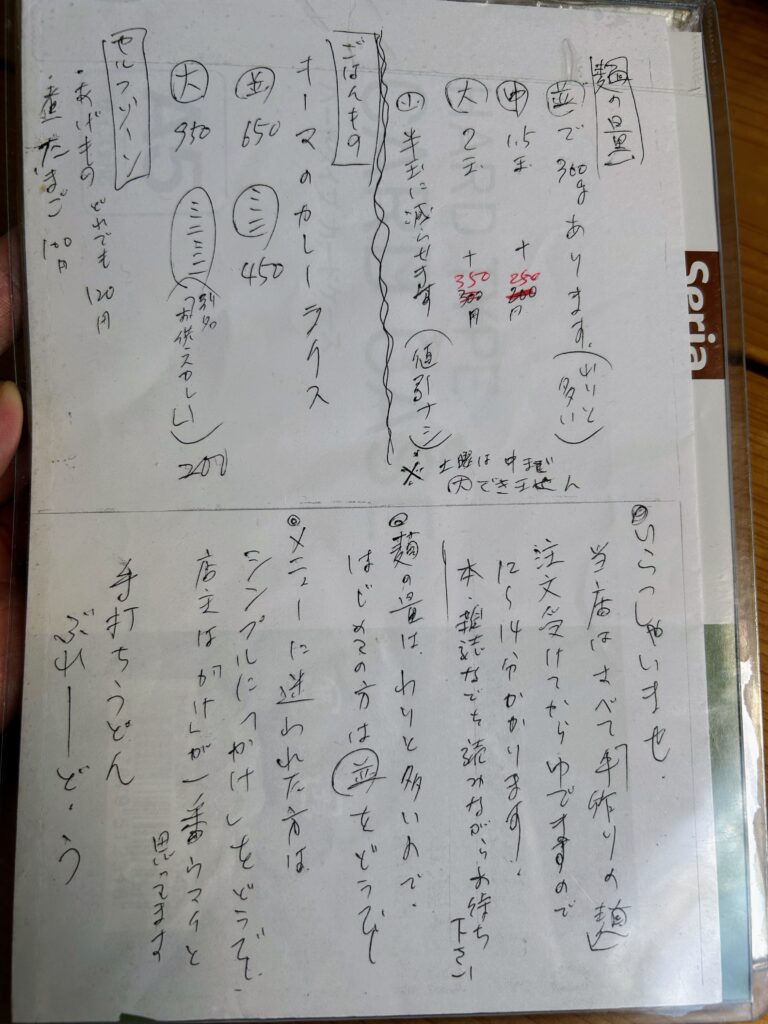 麺の量
並で300gあります。(わりと多い)
中 1.5玉 + 250 200円
大 2玉 + 350 300円
小 半玉に減らせます (値引ナシ)
※土曜は中まで
大できません
ごはんもの
キーマのカレーライス
並 650 ミニ 450
大 950 ミニミニ(別名「お供スカレー」) 200
セルフゾーン
・あげもの どれでも 120円
・煮たまご 100円
◎いらっしゃいませ.
当店はすべて手作りの麺
注文受けてからゆでますので
12〜14分かかります!
本・雑誌なでも読みながらお待ち下さい
◎麺の量は、わりと多いので、
はじめての方は並をどうぞ
◎メニューに迷われた方は
シンプルに「かけ」をどうぞ.
店主は「かけ」が一番ウマイと
思ってます
手打ちうどん
ぶれーど・う
Seria